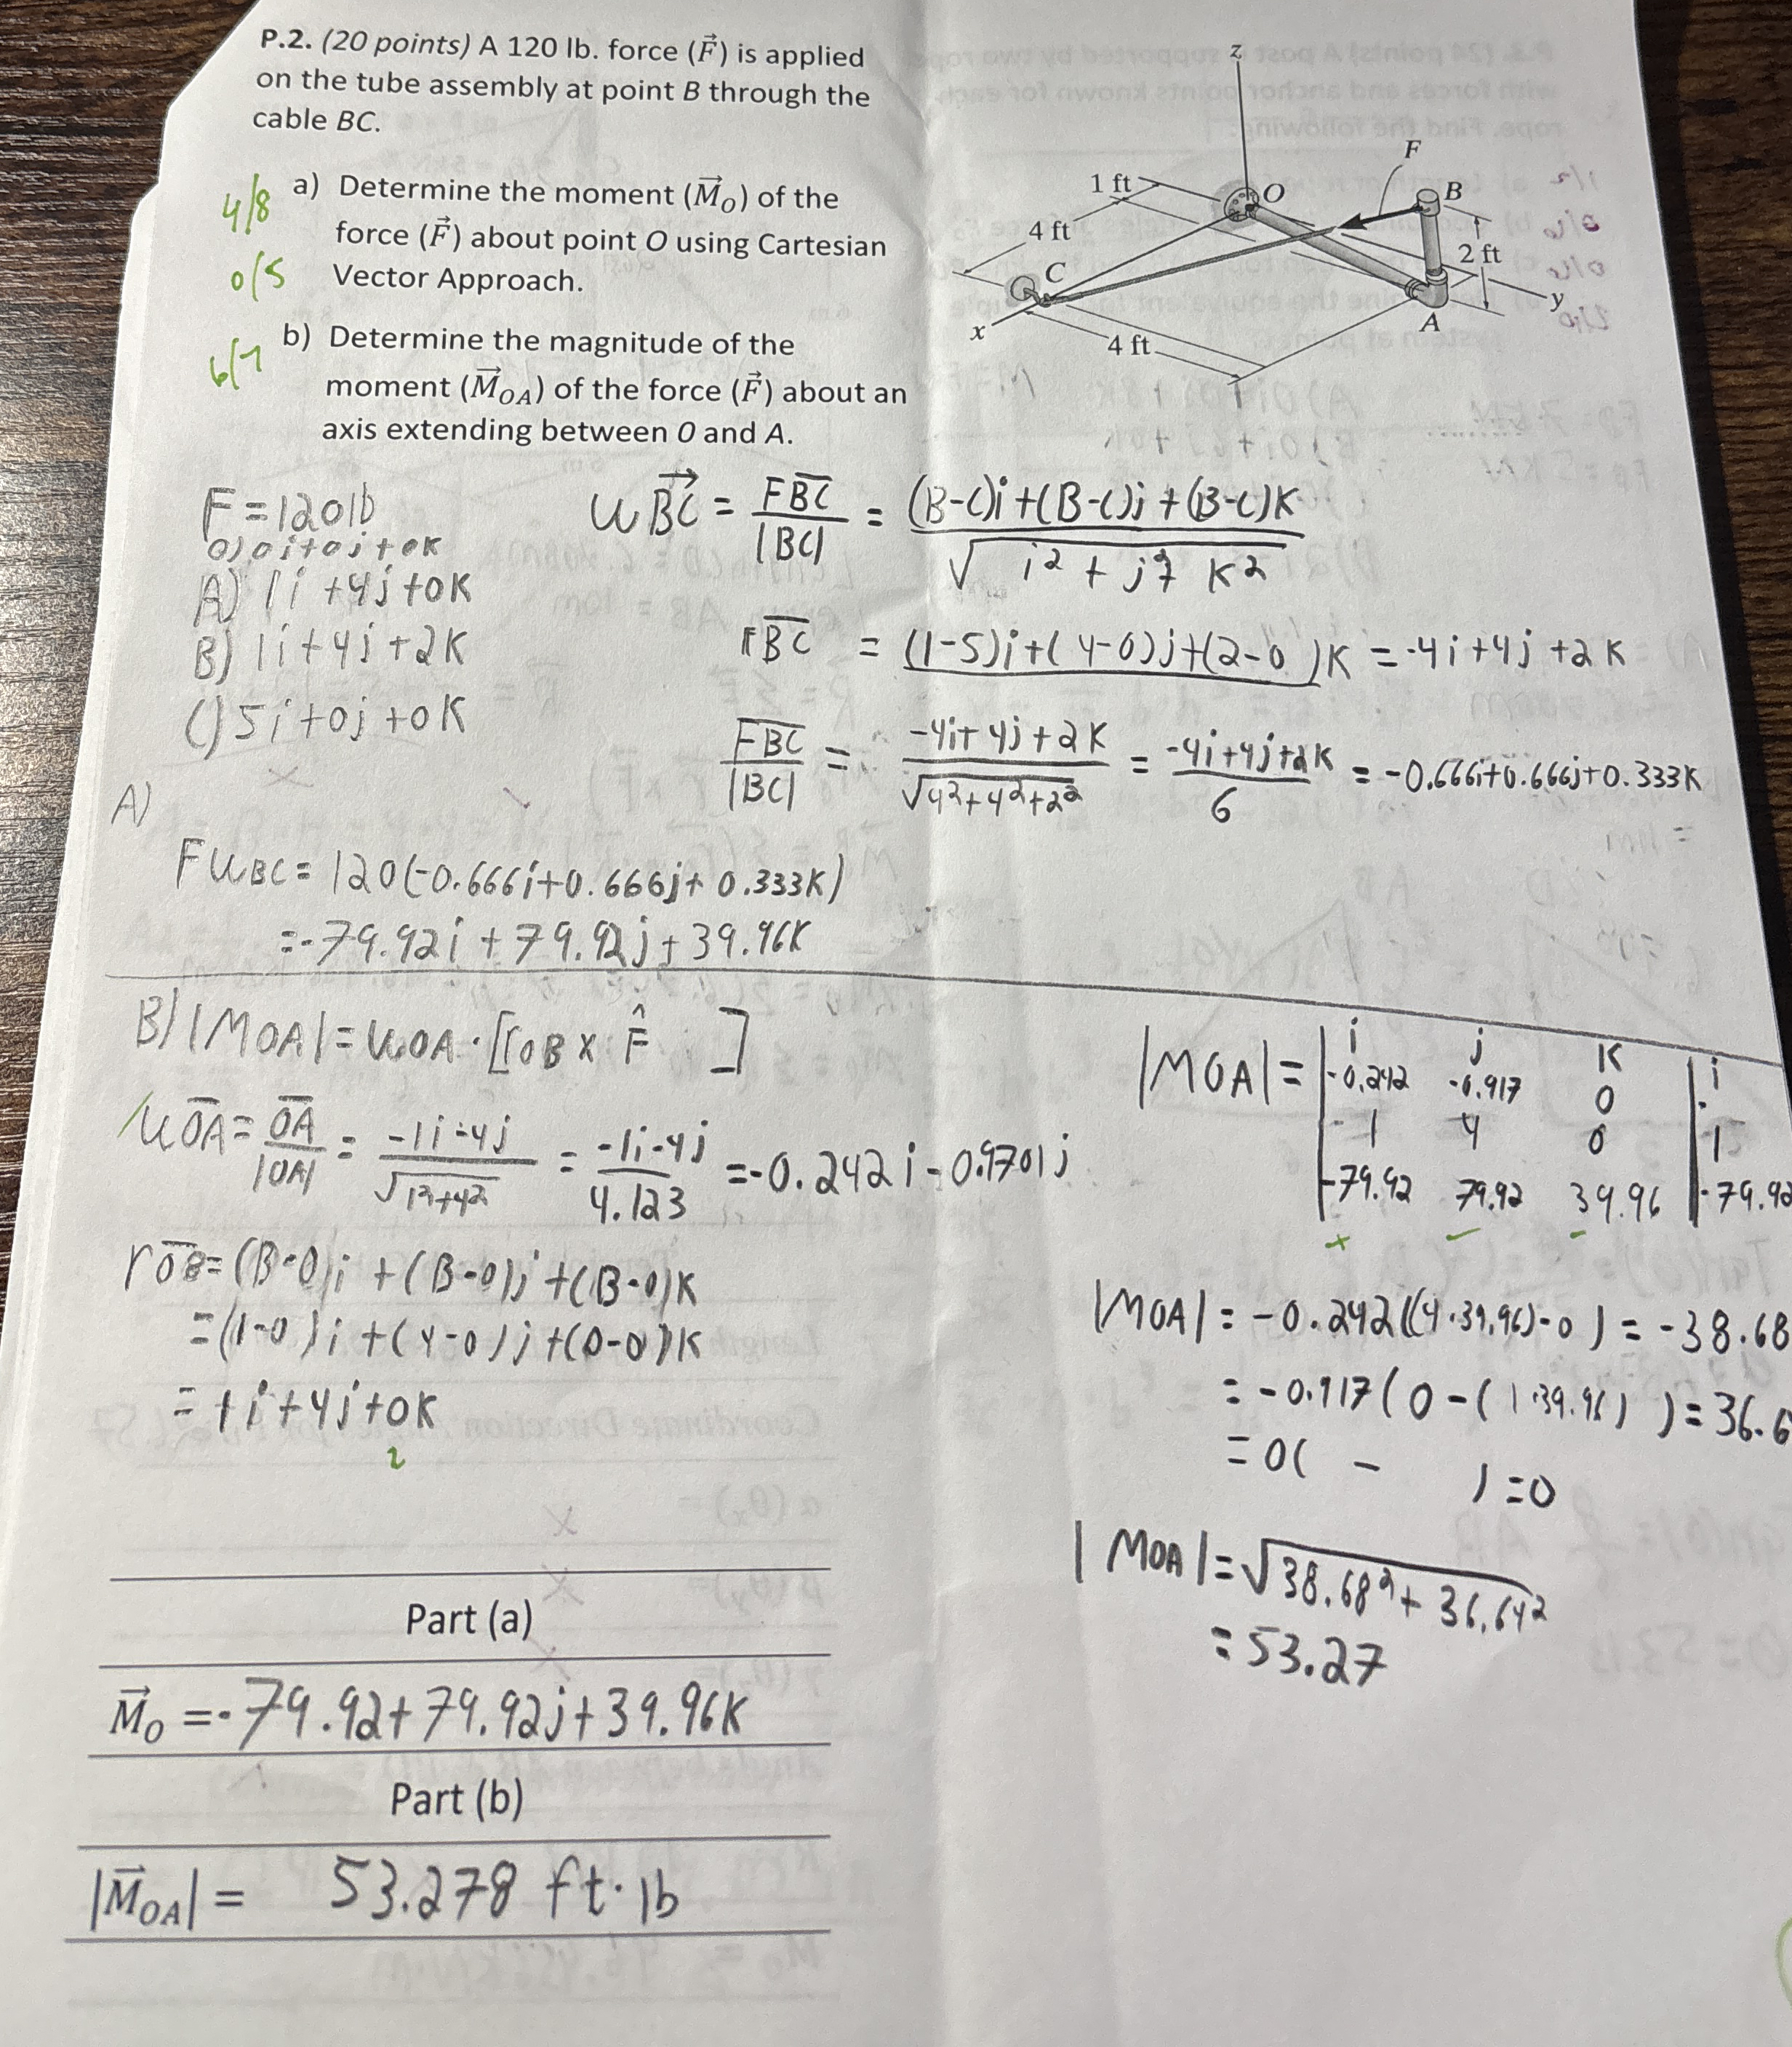 P.2. (20 points) A 120 lb. force (F⃗) is applied
on the tube assembly at point B through the
cable BC.
4/8
a) Determine the moment (M⃗_O) of the
force (F⃗) about point O using Cartesian
0/5
Vector Approach.
6/7
b) Determine the magnitude of the
moment (M⃗_OA) of the force (F⃗) about an
axis extending between O and A.
z
F
1 ft
O
B
4 ft
2 ft
C
y
x
A
4 ft
F=120lb
O) 0i+0j+0K
A) 1i+4j+0K
B) 1i+4j+2K
C) 5i+0j+0K
uBC = FBC/|BC| = (B-C)i+(B-C)j+(B-C)K / √i²+j²+K²
rBC = (1-5)i+(4-0)j+(2-0)K = -4i+4j+2K
FBC/|BC| = -4i+4j+2K / √4²+4²+2² = -4i+4j+2K / 6 = -0.666i+0.666j+0.333K
A)
FuBC = 120(-0.666i+0.666j+0.333K)
= -79.92i+79.92j+39.96K
B) |MOA| = uOA · [rOB x F̂ ]
uOA = OA/|OA| = -1i-4j / √1²+4² = -1i-4j / 4.123 = -0.242i-0.9701j
rOB = (B-0)i+(B-0)j+(B-0)K
= (1-0)i+(4-0)j+(0-0)K
= 1i+4j+0K
2
|MOA| = | i j K | i
-0.242 -0.917 0
-1 4 0 1
-79.92 79.92 39.96 | -79.92
|MOA| = -0.242((4·39.96)-0) = -38.68
= -0.917(0-(1·39.96)) = 36.6
= 0( - ) = 0
|MOA| = √38.68²+36.64²
= 53.27
Part (a)
M⃗_O = -79.92+79.92j+39.96K
Part (b)
|M⃗_OA| = 53.278 ft·lb